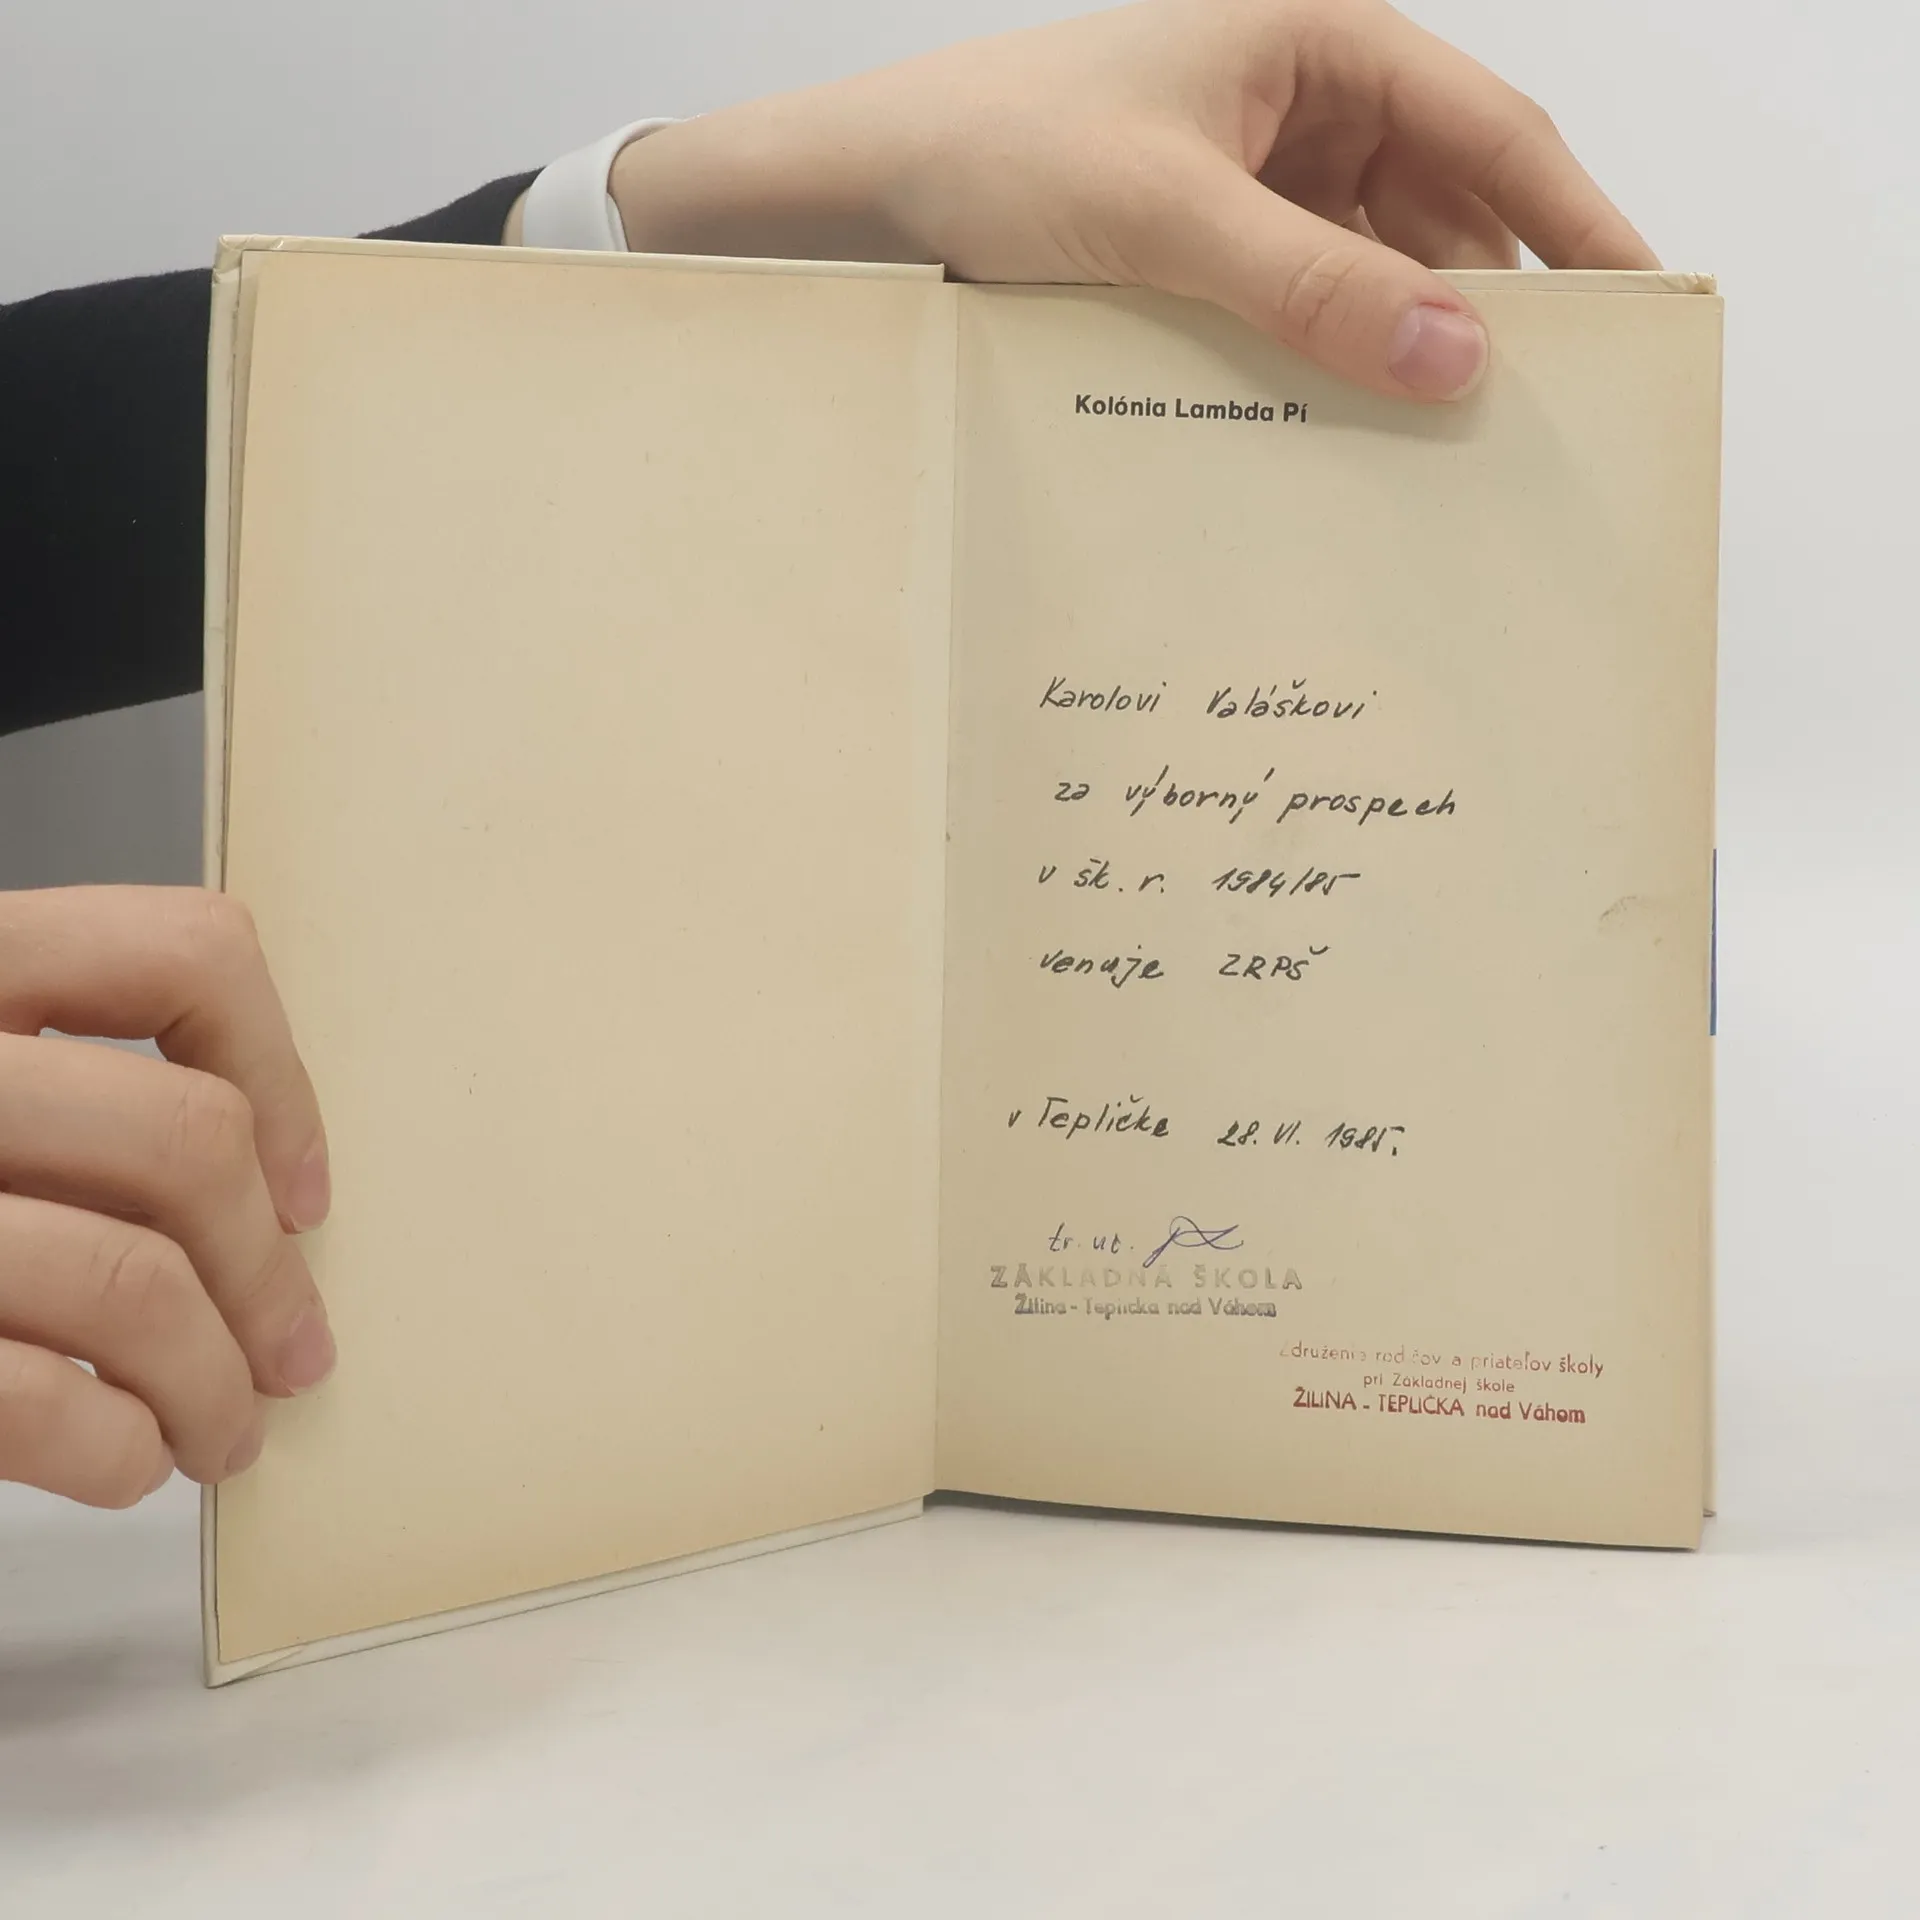 Kolónia Lambda Pí
Karolovi Valáškovi
za výborný prospech
v šk. r. 1984/85
venuje ZRPŠ
v Tepličke 28. VI. 1985.
tr. uč.
ZÁKLADNÁ ŠKOLA
Žilina - Teplička nad Váhom
Združenie rodičov a priateľov školy
pri Základnej škole
ŽILINA - TEPLIČKA nad Váhom